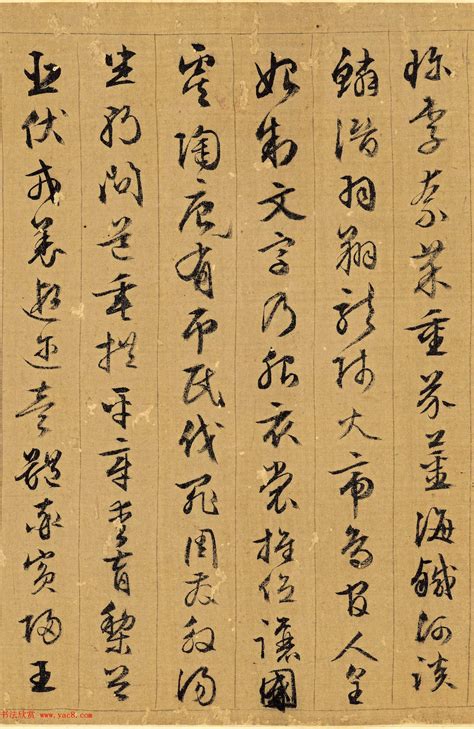 珍李柰菜重芥薑海鹹河淡
鱗潛羽翔龍師火帝鳥官人皇
始制文字乃服衣裳推位讓國
虞陶唐有弔民伐罪周發殷湯
坐朝問道垂拱平章愛育黎首
臣伏戎羌遐邇壹體率賓歸王
书法欣赏 www.yac8.com